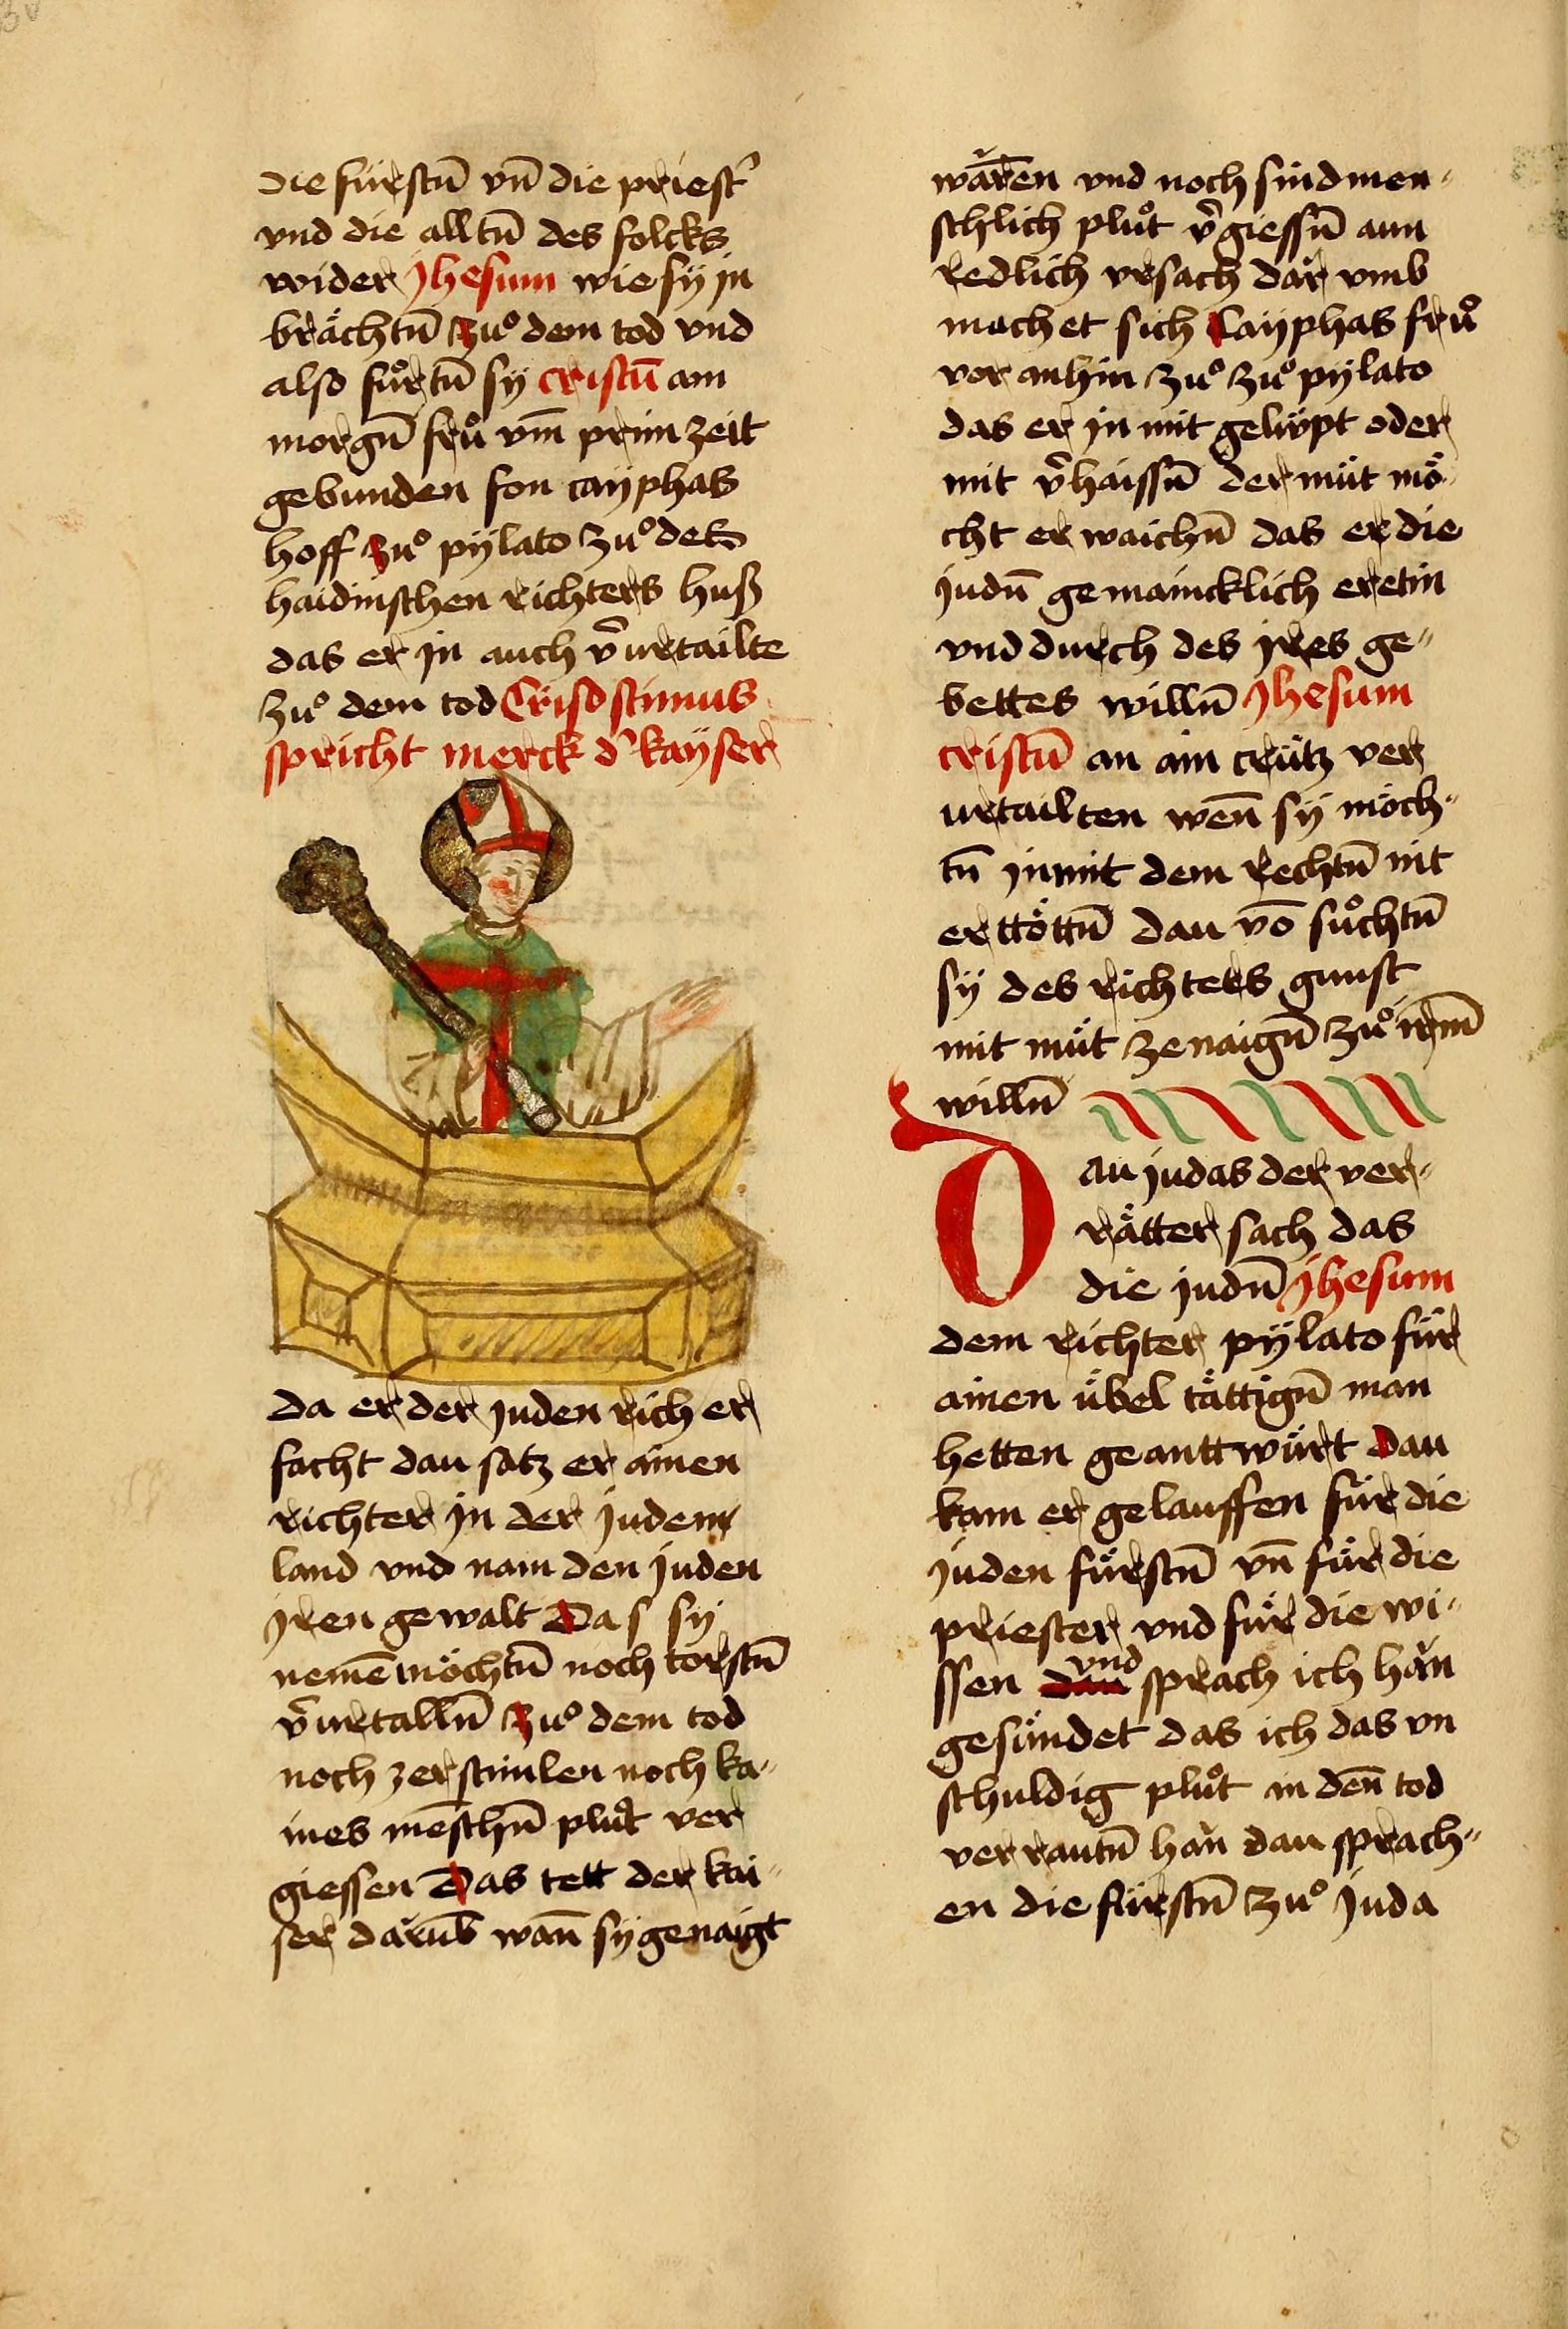 die fürstn̄ vn̄ die priest᾿
vnd die alltn̄ des folcks
wider jhesum wie sÿ jn
brächtn̄ zuͦ dem tod vnd
also fuͤrtn̄ sÿ cristū am
morgn̄ fruͤ vm̄ prim zeit
gebunden fon caÿphas
hoff zuͦ pÿlato zuͦ des
haidinschen richters huß
das er jn auch v̄urtailte
zuͦ dem tod Crisostimus
spricht merck d᾿ kaÿser
da er der juden rich er
facht dau satz er ainen
richter jn der juden
land vnd nam den juden
jren gewalt Das sÿ
nemē möchtn̄ noch torstn̄
v̄urtalln̄ zuͦ dem tod
noch zerstimlen noch ka„
ines mēschn̄ pluͦt ver
giessen Das tett der kai„
ser darūb wan̄ sÿ genaigt
wären vnd noch sind men„
schlich pluͦt v̄giessn̄ aun
redlich vrsach dar vmb
machet sich Caÿphas fruͤ
vor anhin zuͦ zuͦ pÿlato
das er jn mit gelüpt oder
mit v̄haissn̄ der müt mö„
cht er waichn̄ das er die
judn̄ gemaincklich eretin
vnd durch des jres ge„
bettes willn̄ Jhesum
cristū an ain crütz ver
urtailten wen̄ sÿ möch„
tn̄ jn mit dem rechtn̄ nit
erttöttn̄ dau vō suͦchtn̄
sÿ des richters gunst
mit müt ze naign̄ zuͦ irm̄
willn̄
Dau judas der ver„
rätter sach das
die judn̄ Jhesum
dem richter pÿlato für
ainen übel tättign̄ man
hetten geanttwürt Dau
kam er gelauffen für die
juden fürstn̄ vn̄ für die
priester vnd für die wi„
ssen vnd sprach ich hän
gesündet das ich das vn
schuldig pluͦt in den̄ tod
verrautn̄ han dau sprach„
en die fürstn̄ zuͦ juda